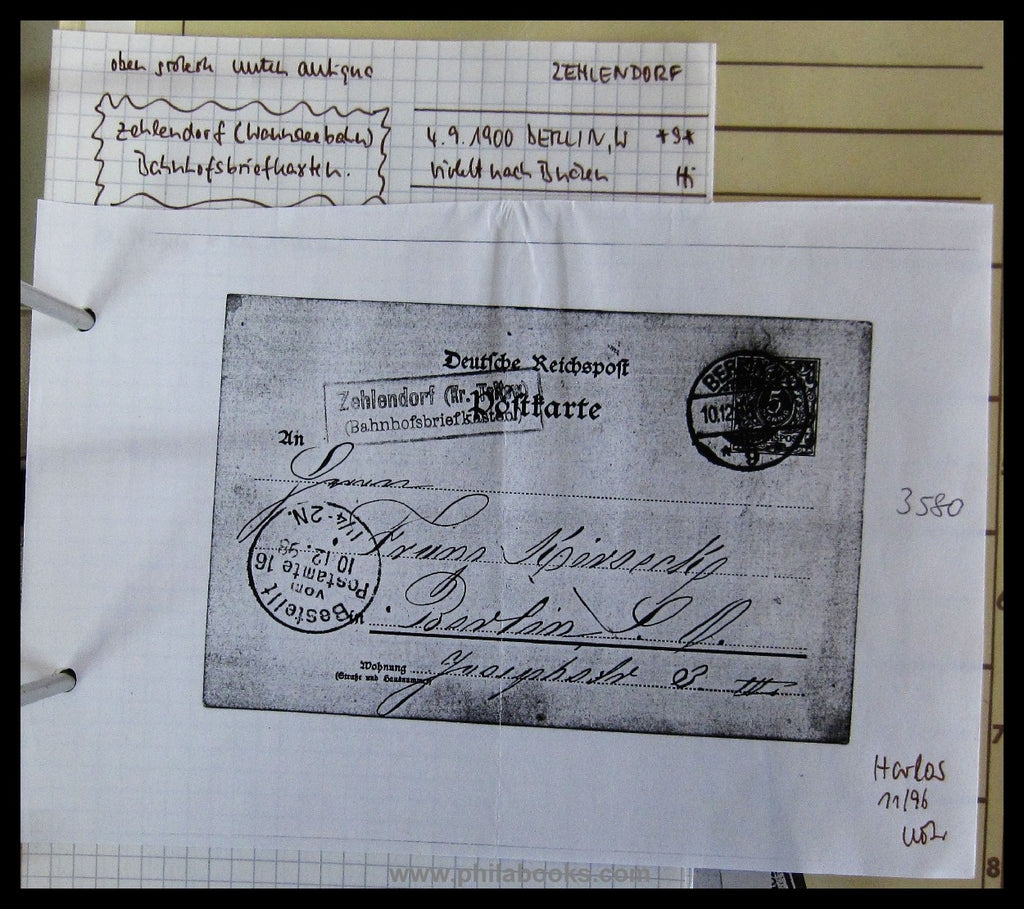 oben grotesk unten antiqua
ZEHLENDORF
Zehlendorf (Wannseebahn)
Bahnhofsbriefkasten.
4.9.1900 BERLIN, W *9*
nach
Deutsche Reichspost
Postkarte
Zehlendorf (Kr. Teltow)
(Bahnhofsbriefkasten)
BER
10.12
* 9
5
An
Herrn
Franz
Berlin S. O.
Wohnung
(Straße und Hausnummer)
Josephstr 8 III.
Bestellt
vom
Postamte 16
10.12.98
1¼-2N.
3580
Harlos
11/96
6
7
8
www.philabooks.com